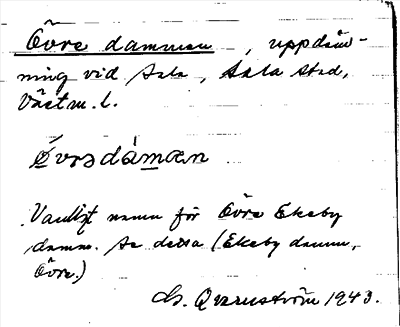 Övre dammen, uppdäm-
ning vid Sala, Sala stad,
Västm. l.
Övrədámæn
Vanligt namn för Övre Ekeby
damm. Se detta (Ekeby damm,
Övre.)
G. Qvarnström 1943.